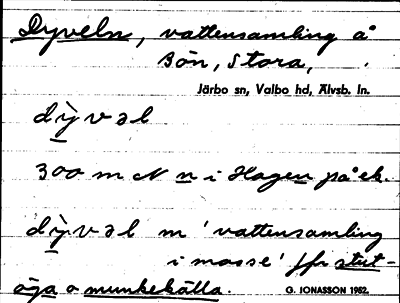 Dyveln, vattensamling å
Bön, Stora,
Järbo sn, Valbo hd, Älvsb. ln.
dỳvəl
300 m N n i Hagen på ek.
dỳvəl m 'vattensamling
i mosse' jfr stut-
öga o munkekälla.
G. JONASSON 1962.